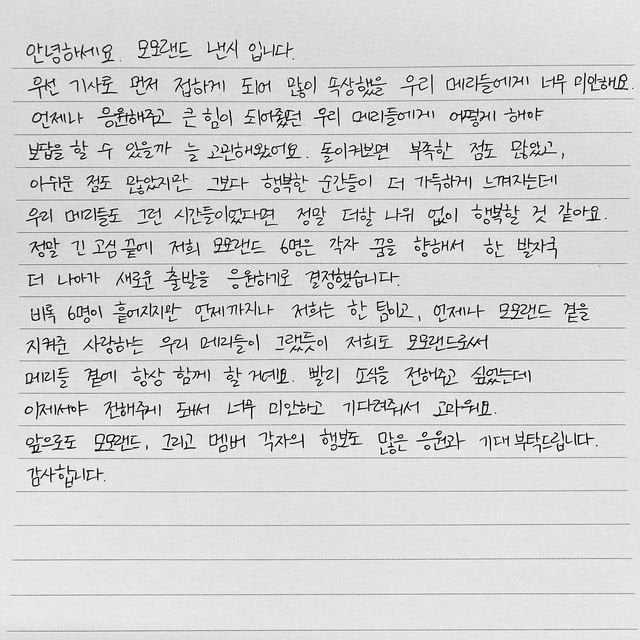 안녕하세요. 모모랜드 낸시 입니다.
우선 기사로 먼저 접하게 되어 많이 속상했을 우리 메리들에게 너무 미안해요.
언제나 응원해주고 큰 힘이 되어줬던 우리 메리들에게 어떻게 해야
보답을 할 수 있을까 늘 고민해왔어요. 돌이켜보면 부족한 점도 많았고,
아쉬운 점도 많았지만 그보다 행복한 순간들이 더 가득하게 느껴지는데
우리 메리들도 그런 시간들이었다면 정말 더할 나위 없이 행복할 것 같아요.
정말 긴 고심 끝에 저희 모모랜드 6명은 각자 꿈을 향해서 한 발자국
더 나아가 새로운 출발을 응원하기로 결정했습니다.
비록 6명이 흩어지지만 언제까지나 저희는 한 팀이고, 언제나 모모랜드 곁을
지켜준 사랑하는 우리 메리들이 그랬듯이 저희도 모모랜드로서
메리들 곁에 항상 함께 할 거예요. 빨리 소식을 전해주고 싶었는데
이제서야 전해주게 돼서 너무 미안하고 기다려줘서 고마워요.
앞으로도 모모랜드, 그리고 멤버 각자의 행보도 많은 응원과 기대 부탁드립니다.
감사합니다.